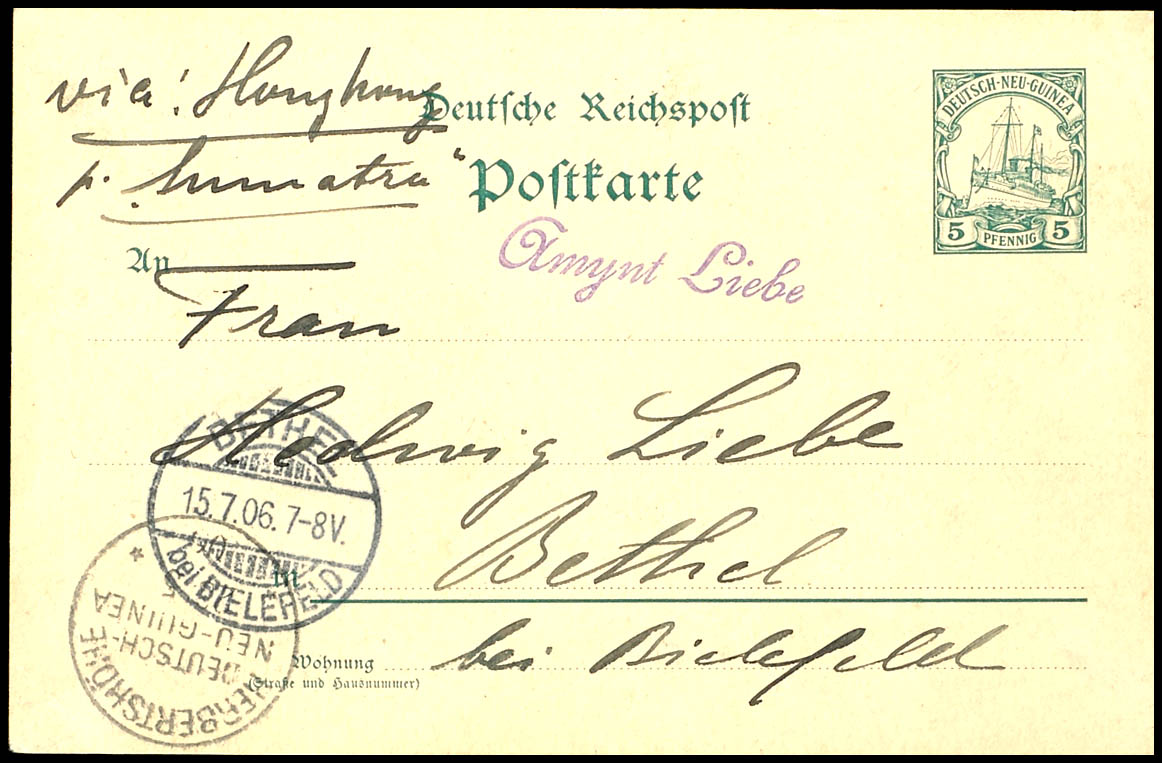 via: Hongkong
p. „Sumatra“
Deutsche Reichspost
Postkarte
DEUTSCH-NEU-GUINEA
5 PFENNIG 5
Amynt Liebe
An
Frau
Hedwig Liebe
BETHEL
15.7.06. 7-8V.
bei BIELEFELD
in
Bethel
HERBERTSHÖHE
DEUTSCH-
NEU-GUINEA
Wohnung
(Straße und Hausnummer)
bei Bielefeld